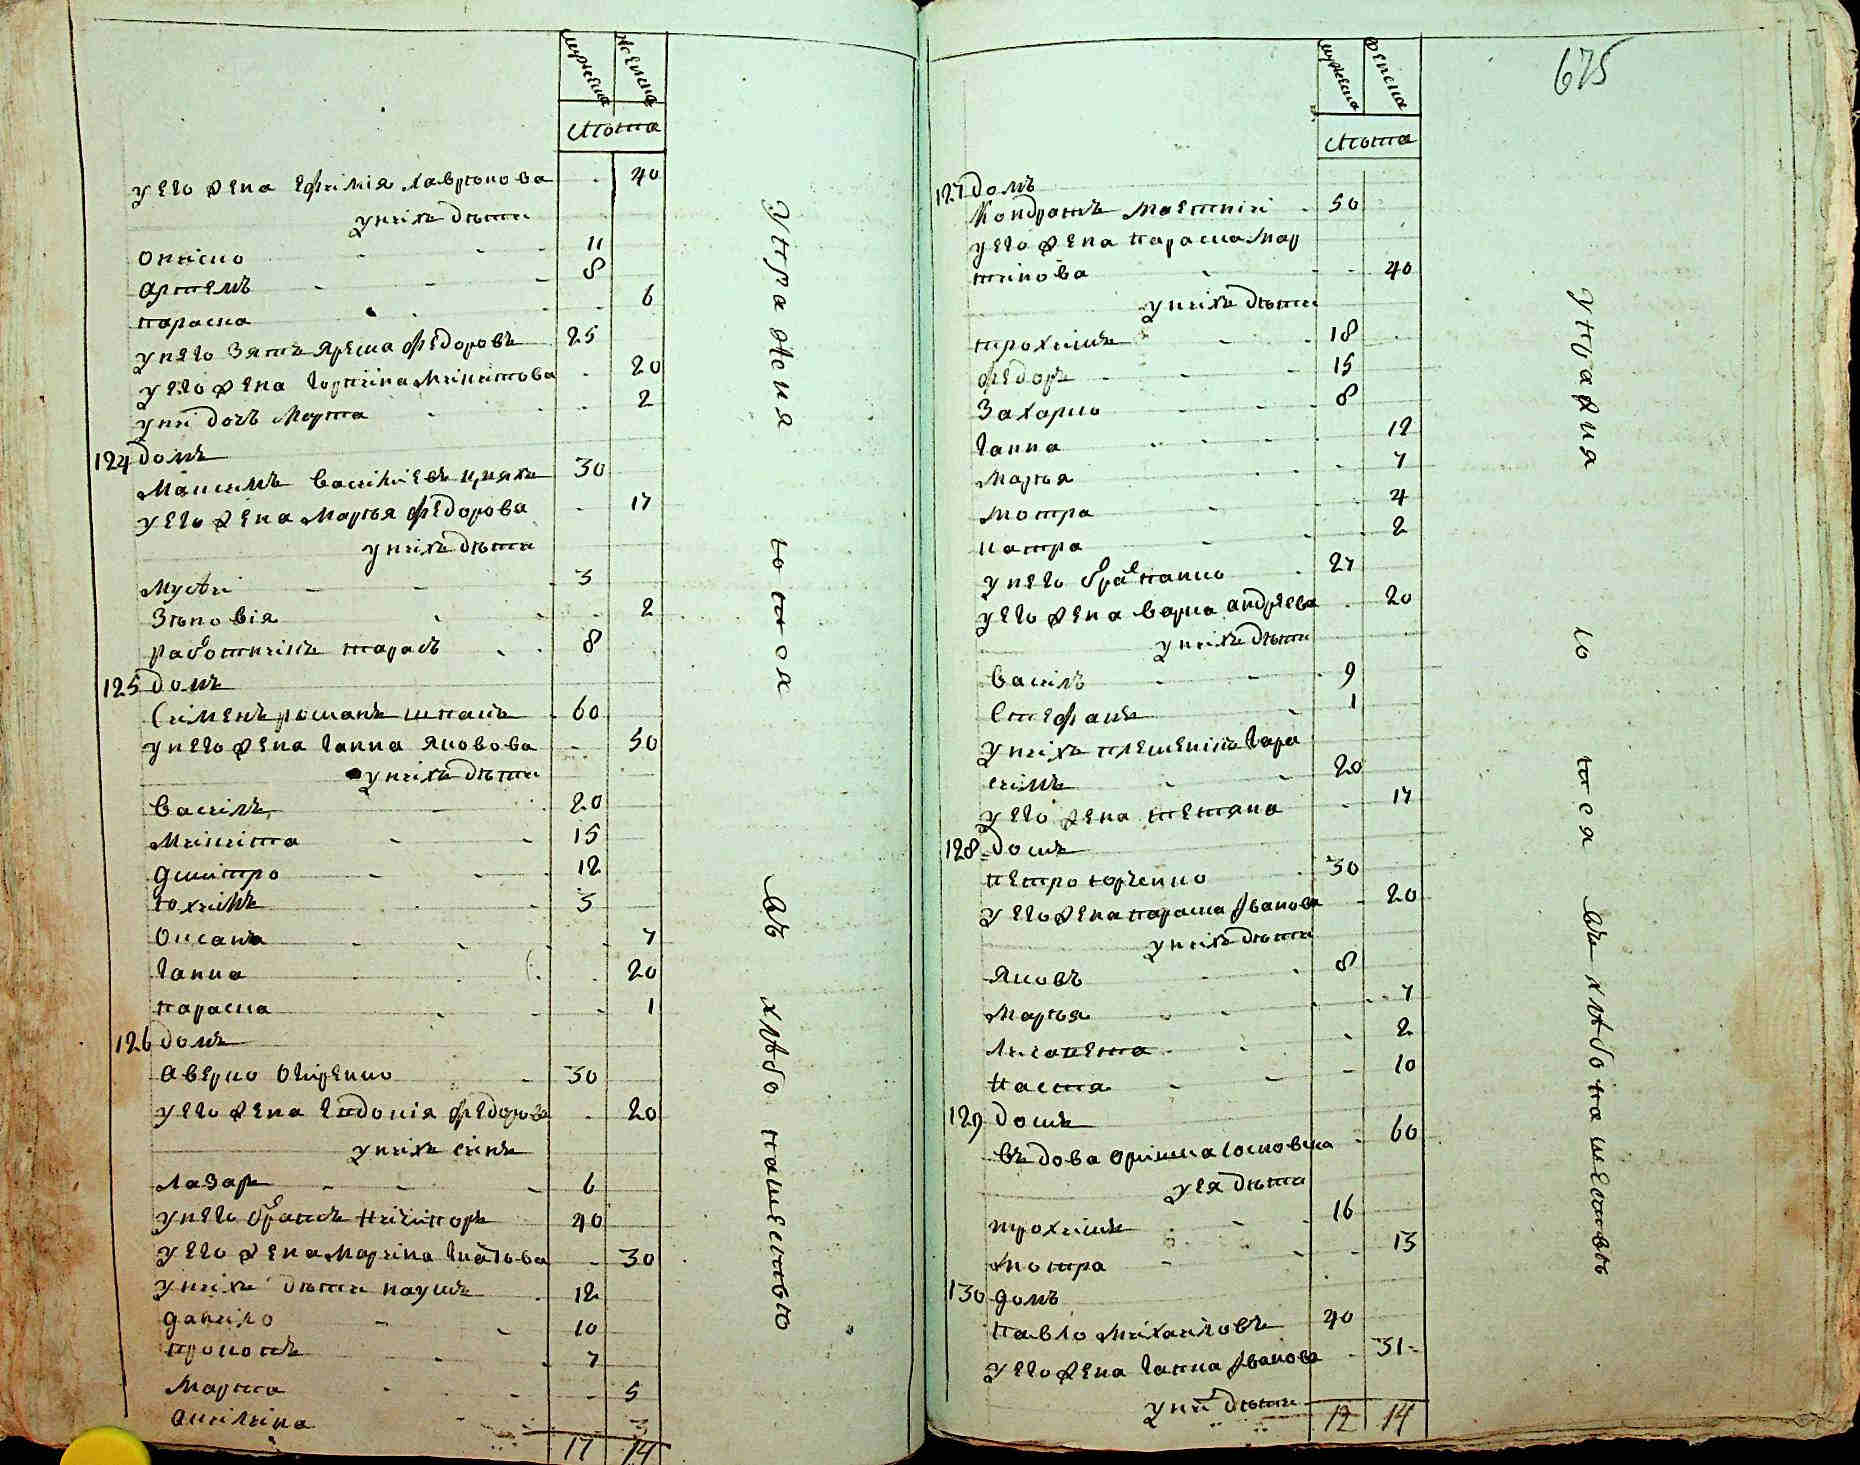 мужеска женска
лѣта
у его жена ефимія лавріонова 40
у нихъ дѣти
ониско 11
артемъ 8
параска 6
у него зять ярема федоровъ 25
у его жена горпина микитова 20
у ни дочь марта 2
124 домъ
максимъ василиевъ 30
у его жена марья федорова 17
у нихъ дѣти
мусѣи 3
зѣновія 2
работникъ тарасъ 8
125 домъ
семенъ шпакъ 60
у него жена ганна яковова 50
у нихъ дѣти
василь 20
микита 15
дмитро 12
юхимъ 3
оксана 7
ганна 20
параска 1
126 домъ
аверко 30
у его жена федорова 20
у нихъ синъ
лазаръ 6
у него братъ ничипоръ 40
у его жена марина 30
у нихъ дѣти наумъ 12
данило 10
прокопъ 7
марта 5
акилина 3
17 14
упражения
въ хлѣбо пашествѣ
675
мужеска женска
лѣта
127 домъ
кондратъ 50
у его жена параска мар
тинова 40
у нихъ дѣти
трохимъ 18
федоръ 15
захарко 8
ганна 12
марья 7
мотра 4
2
у него братъ панко 27
у его жена варка андреева 20
у нихъ дѣти
василъ 9
стефанъ 1
у нихъ племеникъ гара
симъ 20
у его жена тетяна 17
128 домъ
петро юрченко 30
у его жена параска иванова 20
у нихъ дѣти
яковъ 8
марья 7
лисавета 2
настя 10
129 домъ
въдова оришка 60
у ея дѣти
трохимъ 16
мотра 13
130 домъ
павло михаиловъ 40
у его жена ганна иванова 31
у ни дѣти
12 14
упражия
въ хлѣбопашествѣ